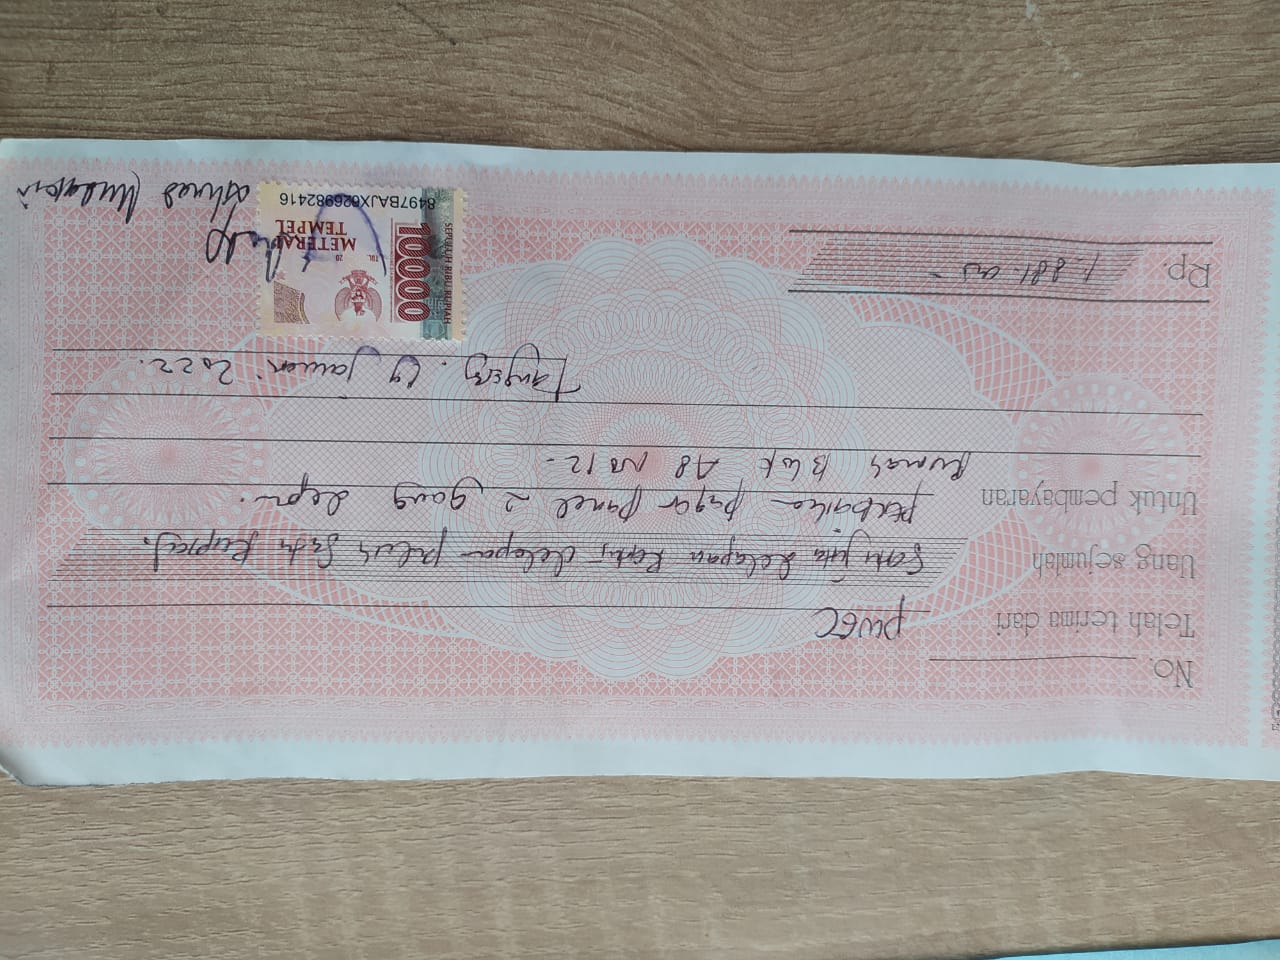 No.
Telah terima dari PWEC
Uang sejumlah Satu juta delapan Ratus delapan puluh Satu Rupiah.
Untuk pembayaran perbaikan pagar panel 2 gang depan.
Rumah Blok A8 No 12.
Januari 2022.
Rp. 1.881.000 -
SEPULUH RIBU RUPIAH
10000
TGL. 20
METERAI
TEMPEL
8497BAJX626982416
Ahmad